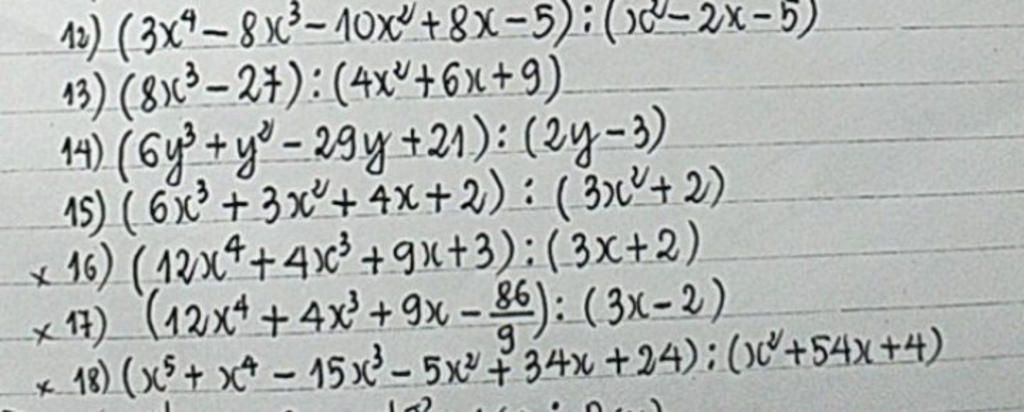 12) (3x⁴ − 8x³ − 10x² + 8x − 5) : (x² − 2x − 5)
13) (8x³ − 27) : (4x² + 6x + 9)
14) (6y³ + y² − 29y + 21) : (2y − 3)
15) (6x³ + 3x² + 4x + 2) : (3x² + 2)
x 16) (12x⁴ + 4x³ + 9x + 3) : (3x + 2)
x 17) (12x⁴ + 4x³ + 9x − 86/9) : (3x − 2)
x 18) (x⁵ + x⁴ − 15x³ − 5x² + 34x + 24) : (x² + 54x + 4)